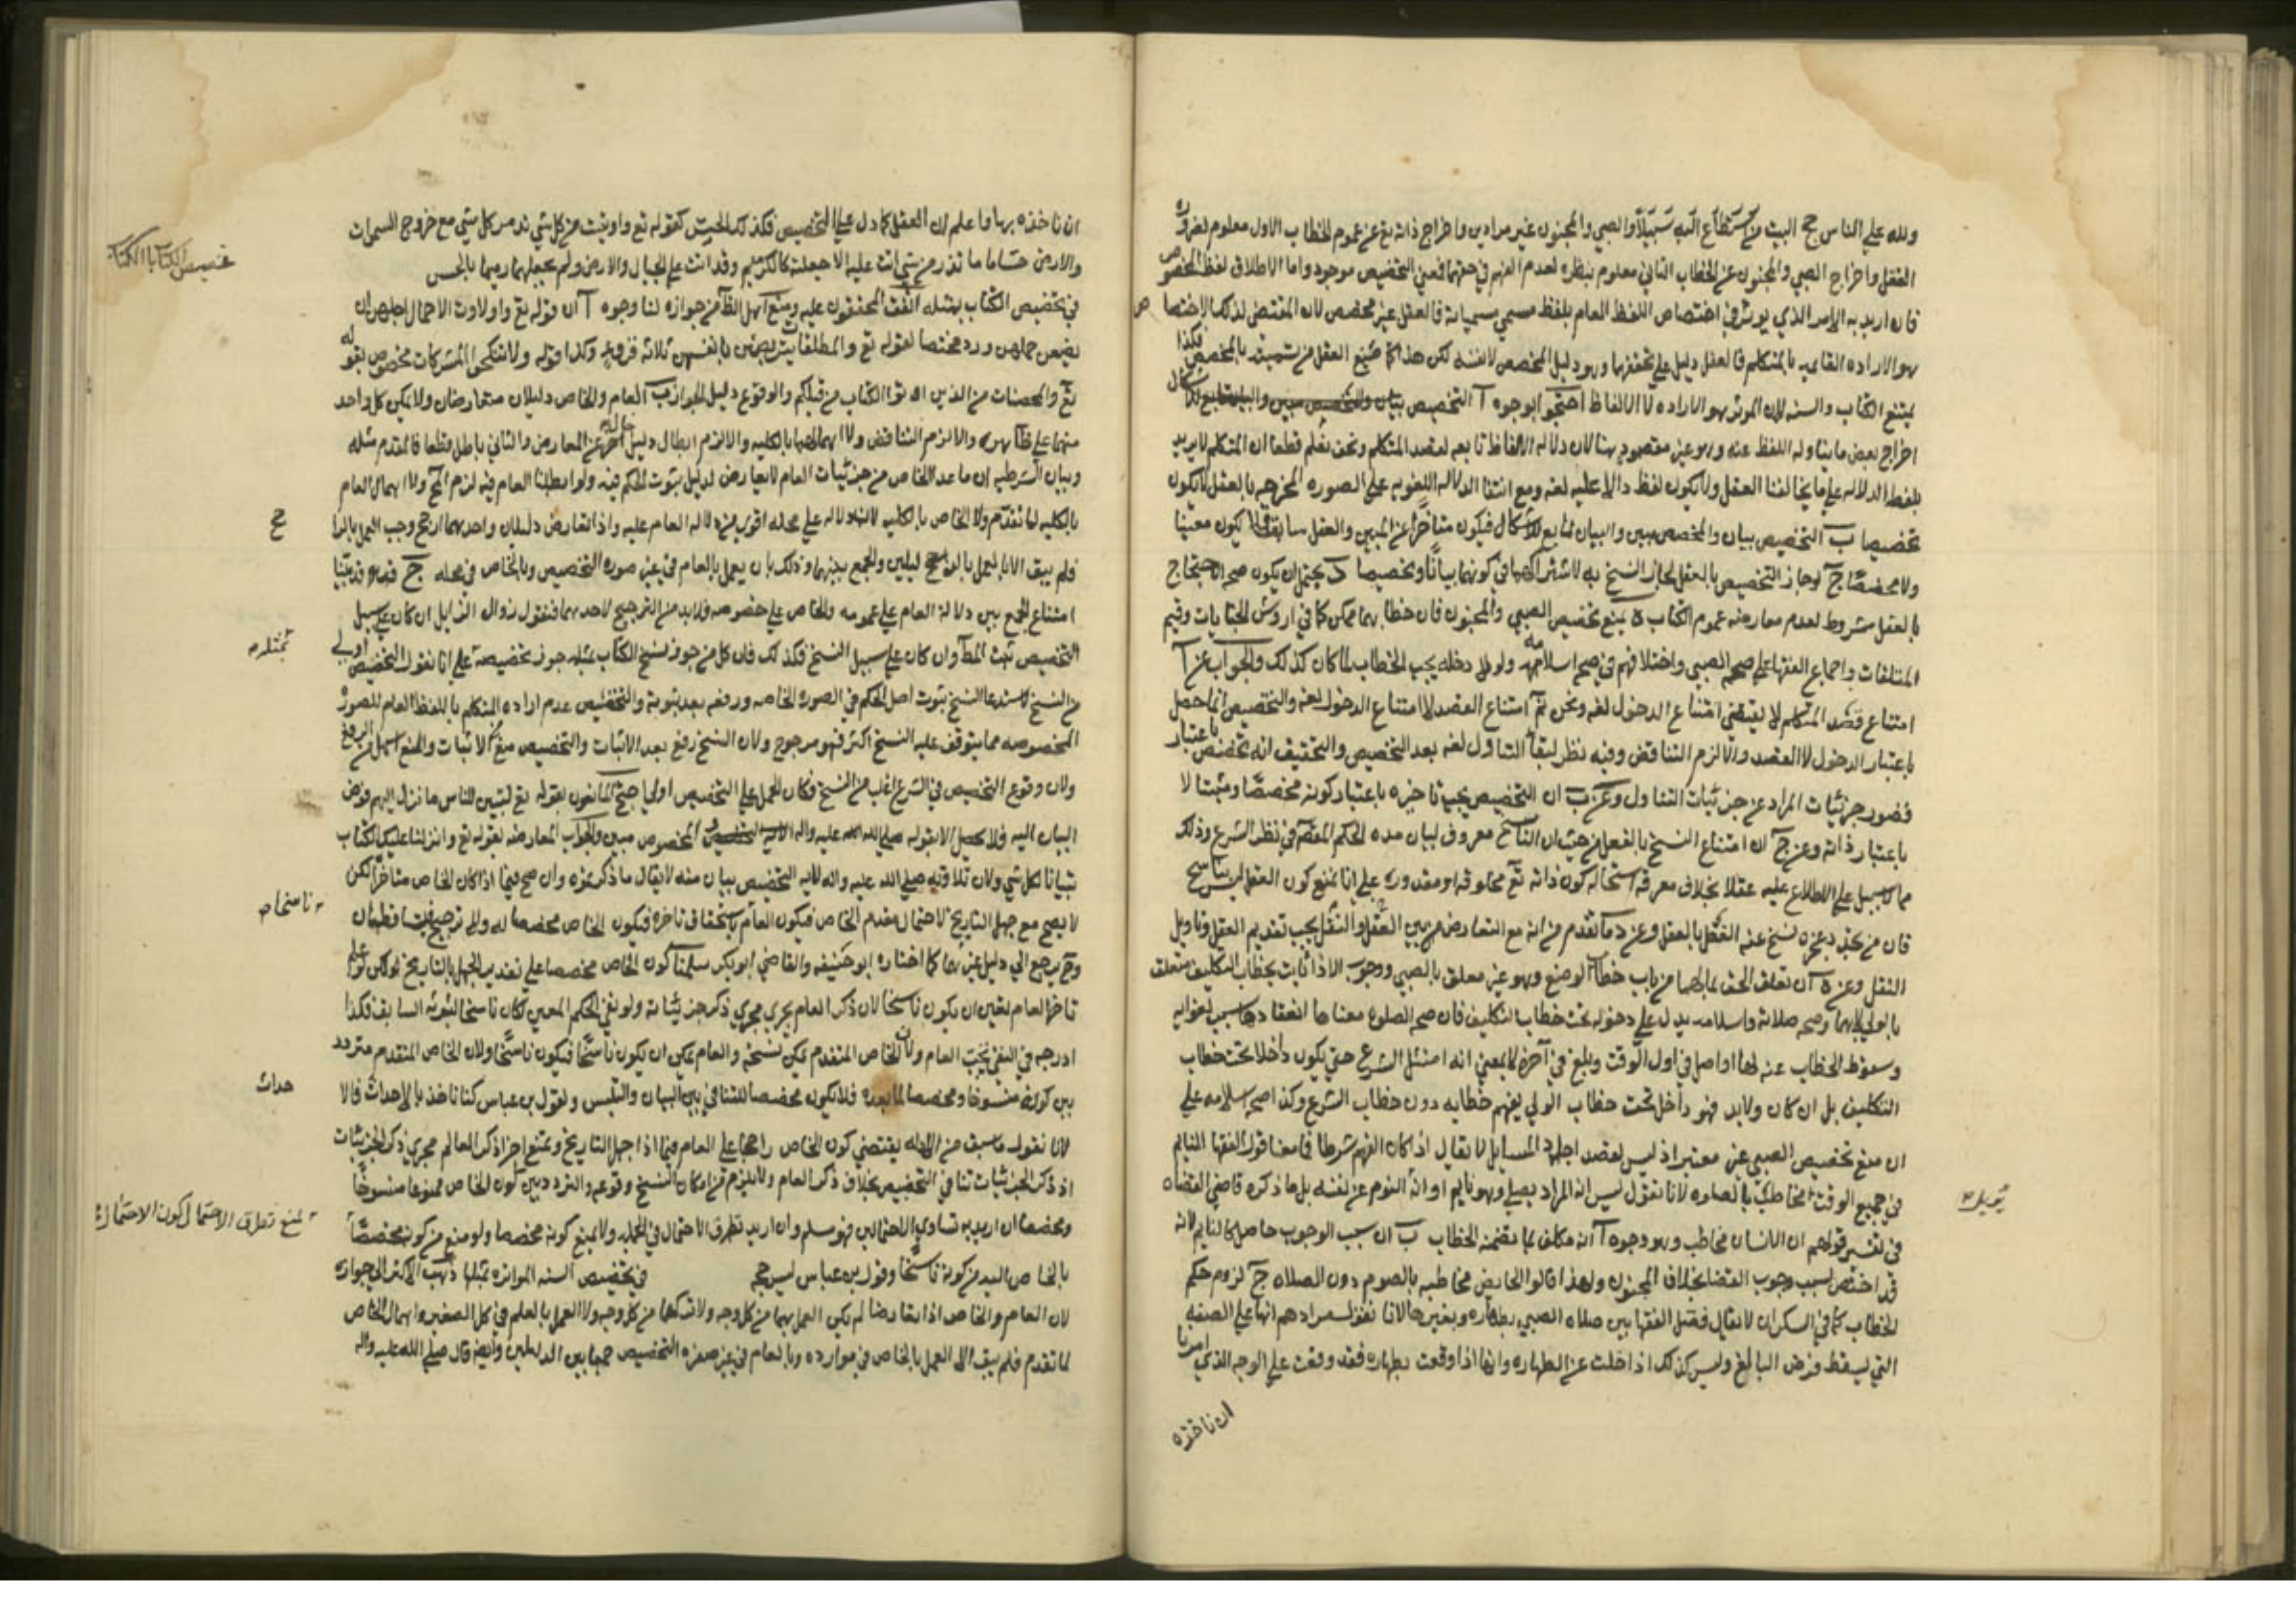 ولله علي الناس حج البيت من استطاع اليه سبيلا والصبي والمجنون غير مرادين واخراج ذاته تع عن عموم الخطاب الاول معلوم لضرورة
العقل واخراج الصبي والمجنون عن الخطاب الثاني معلوم بنظره لعدم الفهم في حقهما فعين التخصيص موجود واما الاطلاق لفظ المخصوص
فان اريد به الامر الذي يوثر في اختصاص اللفظ العام بلفظ مسمي مسمياته فالعقل غير مخصص لان المقتضي لذلك الاختصاص
هو الاراده القايمه بالمتكلم فالعقل دليل علي تحققها وهو دليل المخصص لا نفسه لكن هذا كما منع العقل من تسميته بالمخصص فكذا
يمتنع الكتاب والسنه لان الموثر هو الاراده لا الالفاظ احتجوا بوجوه آ التخصيص
اخراج بعض ما يتناوله اللفظ عنه وهو غير مقصود هنا لان دلاله الالفاظ تابعه لقصد المتكلم ونحن نعلم قطعا ان المتكلم لا يريد
بلفظ الدلاله علي ما يخالفنا العقل ولا يكون لفظ دالا عليه لغه ومع انتفا الدلاله اللغويه علي الصوره المخرجه بالعقل لا يكون
تخصيصا ب التخصيص بيان والمخصص مبين والبيان تابع للاشكال فيكون متاخرا عن المبين والعقل سابق فلا يكون مبينا
ولا مخصصا ج لو جاز التخصيص بالعقل لجاز النسخ به لاشتراكهما في كونهما بيانا وتخصيصا د يحتمل ان يكون صحه الاحتجاج
بالعقل مشروط لعدم معارضه عموم الكتاب ه يمنع تخصيص الصبي والمجنون فان خطابهما ممكن كما في اروش الجنايات وقيم
المتلفات واجماع الفقها علي صحه الصبي واختلافهم في صحه اسلامه ولولا دخله تحت الخطاب لما كان كذلك والجواب عن آ
امتناع قصد المتكلم لا يقتضي امتناع الدخول لغه ونحن نم امتناع القصد لا امتناع الدخول لغه والتخصيص انما حصل
باعتبار الدخول لا القصد والا لزم التناقض وفيه نظر لبقا التناول لغه بعد التخصيص والتحقيق انه تخصص باعتبار
قصور جزئيات المراد عن جزئيات التناول وعن ب ان التخصيص يجب تاخيره باعتبار كونه مخصصا ومثبتا لا
باعتبار ذاته وعن ج ان امتناع النسخ بالفعل من حيث ان الناسخ معروف لبيان مده الحكم المقصه في نظر الشرع وذلك
مما لا سبيل علي الاطلاع عليه عقلا بخلاف معرفه استحاله كون ذاته تع مخلوقه او مقدوره علي انا نمنع كون العقل ليس بناسخ
فان من نسخ عنه العقل بالعقل وعن د ما تقدم من انه مع التعارض من بين العقل والنقل يجب تقديم العقل وتاويل
النقل وعن ه آن تعلق الحق بمالهما من باب خطاب الوضع وهو غير معلق بالصبي ووجوب الادا ثابت بخطاب التكليف متعلق
بالولي لا بهما وصحه صلاته واسلامه يدل علي دخوله تحت خطاب التكليف فان صحه الصلوه معناها انعقادها سبب لثوابه
وسقوط الخطاب عنه لها اذا صلي في اول الوقت وبلغ في آخره لا بمعني انه امتثل الشرع حتي يكون داخلا تحت خطاب
التكليف بل ان كان ولابد فهو داخل تحت خطاب الولي بفهم خطابه دون خطاب الشرع وكذا صح اسلامه علي
ان منع تخصيص الصبي غير معتبر اذ ليس لقصد اجلهذ المسايل لا يقال اذا كان الفهم شرطا فما معنا قول الفقها النايم
في جميع الوقت مخاطب بالصلوه لانا نقول ليس ان المراد يصلي وهو نايم او انه النوم عن نفسه بل ما ذكره قاضي القضاه
في تفسير قولهم ان الانسان مخاطب وهو وجوه آ انه مكلف بما يتضمنه الخطاب ب ان سبب الوجوب حاصل للنايم لانه
قد اختص لسبب وجوب القضا بخلاف المجنون ولهذا قالوا الحايض مخاطبه بالصوم دون الصلاه ج لزوم حكم
الخطاب كما في السكران لا يقال فقد الفقها بين صلاه الصبي بطهاره وبغيرها لانا نقول مرادهم انها علي الصفه
التي يسقط فرض البالغ وليس كذلك اذا خلت عن الطهاره وانها اذا وقعت بطهاره فقد وقعت علي الوجه الذي امرنا
ان ناخذه
ان ناخذه بها واعلم ان العقل كما دل علي التخصيص فكذلك الحس كقوله تع واوتيت من كل شي تدمر كل شي مع خروج السموات
والارض حسا ما تذر من شي اتت عليه الا جعلته كالرميم وقد اتت علي الجبال والارض ولم تجعلها رميما بالحس
تخصيص الكتاب بالكتاب
في تخصيص الكتاب بمثله اتفق المحققون عليه ومنع اهل الظاهر من جوازه لنا وجوه آ ان قوله تع واولات الاحمال اجلهن ان
يضعن حملهن ورد مختصا لقوله تع والمطلقات يتربصن بانفسهن ثلاثه قروء وكذا قوله ولا تنكحوا المشركات مخصوص بقوله
تع والمحصنات من الذين اوتوا الكتاب من قبلكم والوقوع دليل الجواز ب العام والخاص دليلان متعارضان ولا يمكن كل واحد
منهما علي ظاهره والا لزم التناقض ولا اهمالهما بالكليه والا لزم ابطال دليل خال عن المعارض والتالي باطل قطعا فالمقدم مثله
وبيان الشرطيه ان ما عدا الخاص من جزئيات العام لا يعارض لدليل ثبوت الحكم فيه ولو ابطلنا العام فيه لزم المح ولا اهمال العام
بالكليه لما تقدم ولا الخاص بالكليه لان دلاله علي محله اقوي من دلاله العام عليه واذا تعارض دليلان واحدهما ارجح وجب العمل بالراجح
فلم يبق الا العمل بالدليلين والجمع بينهما وذلك بان يعمل بالعام في غير صوره التخصيص وبالخاص في محله ج قد بينا
امتناع الجمع بين دلاله العام علي عمومه والخاص علي خصوصه فلابد من الترجيح لاحدهما فنقول زوال الزايل ان كان علي سبيل
التخصيص ثبت المط وان كان علي سبيل النسخ فكذلك فان كل من جوز نسخ الكتاب بمثله جوز تخصيصه علي انا نقول التخصيص اولي
من النسخ لاستدعا النسخ ثبوت اصل الحكم في الصوره الخاصه ورفعه بعد ثبوته والتخصيص عدم اراده المتكلم باللفظ العام للصوره
المخصوصه مما يتوقف عليه النسخ اكثر فهو مرجوح ولان النسخ رفع بعد الاثبات والتخصيص منع الاثبات والمنع اسهل من الرفع
ولان وقوع التخصيص في الشرع اغلب من النسخ فكان الحمل علي التخصيص اولي احتج المانعون بقوله تع لتبين للناس ما نزل اليهم فوض
البيان اليه فلا يحصل الا بقوله صلي الله عليه واله المخصوص مبين والجواب المعارضه بقوله تع وانزلنا عليك الكتاب
تبيانا لكل شي ولان تلاوته صلي الله عليه واله لايه التخصيص بيان منه لا يقال ما ذكرتموه وان صح فيما اذا كان الخاص متاخرا لكن
لا يصح مع جهل التاريخ لاحتمال تقدم الخاص فيكون العام ناسخا فتاخره فيكون الخاص مخصصا له ولا ترجيح فيتساقطان
وح يرجع الي دليل غيرهما كما اختاره ابو حنيفه والقاضي ابو بكر سلمنا كون الخاص مخصصا علي تقدير الجهل بالتاريخ لكن لو علم
تاخر العام تعين ان يكون ناسخا لان ذكر العام يجري مجري ذكر جزئياته ولو نفي الحكم المعين لكان ناسخا لثبوته السابق فكذا
ادرجه في النفي تحت العام ولان الخاص المتقدم يمكن نسخه والعام يمكن ان يكون ناسخا فيكون ناسخا ولان الخاص المتقدم متردد
بين كونه منسوخا ومخصصا لما بعده فلا يكون مخصصا للتنافي بين البيان والتلبس ولقول بن عباس كنا ناخذ بالاحداث فالا حداث
لانا نقول ما سبق من الادله يقتضي كون الخاص راجحا علي العام فيما اذا جهل التاريخ ونمنع اجرا ذكر العالم مجري ذكر الجزئيات
اذ ذكر الجزئيات تنافي التخصيص بخلاف ذكر العام ولا يلزم من امكان النسخ وقوعه والتردد بين كون الخاص ممنوعا منسوخا
ومخصصا ان اريد به تساوي الاحتمالين فهو مسلم وان اريد تطرق الاحتمال في الجمله ولا يمنع كونه مخصصا ولو منع من كونه مخصصا
بالخاص اليد من كونه ناسخا وقول بن عباس ليس حجه في تخصيص السنه المتواتره بمثلها ذهب الاكثر الي جوازه
لان العام والخاص اذا تعارضا لم يكن العمل بهما من كل وجه ولا تركهما من كل وجه ولا العمل بالعام في كل الصور واهمال الخاص
لما تقدم فلم يبق الا العمل بالخاص في موارده وبالعام في غير صوره التخصيص جمعا بين الدليلين وايضا قال صلي الله عليه واله